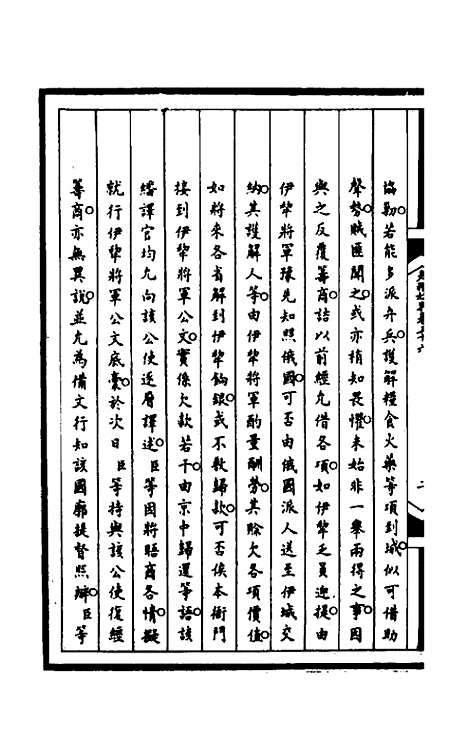 協勦若能多派弁兵護解糧食火藥等項到城似可借助
聲勢賊匪聞之或亦稍知畏懼未始非一舉兩得之事因
與之反覆籌商詰以前經允借各項如伊犂乏員迎提由
伊犂將軍豫先知照俄國可否由俄國派人送至伊城交
納其護解人等由伊犂將軍酌量酬勞其賒欠各項價值
如將來各省解到伊犂餉銀或不敷歸款可否俟本衙門
接到伊犂將軍公文實係欠款若干由京中歸還等語該
繙譯官均允向該公使逐層譯述臣等因將晤商各情擬
就行伊犂將軍公文底稾於次日臣等持與該公使復經
籌商亦無異說並允為備文行知該國廓提督照辦臣等